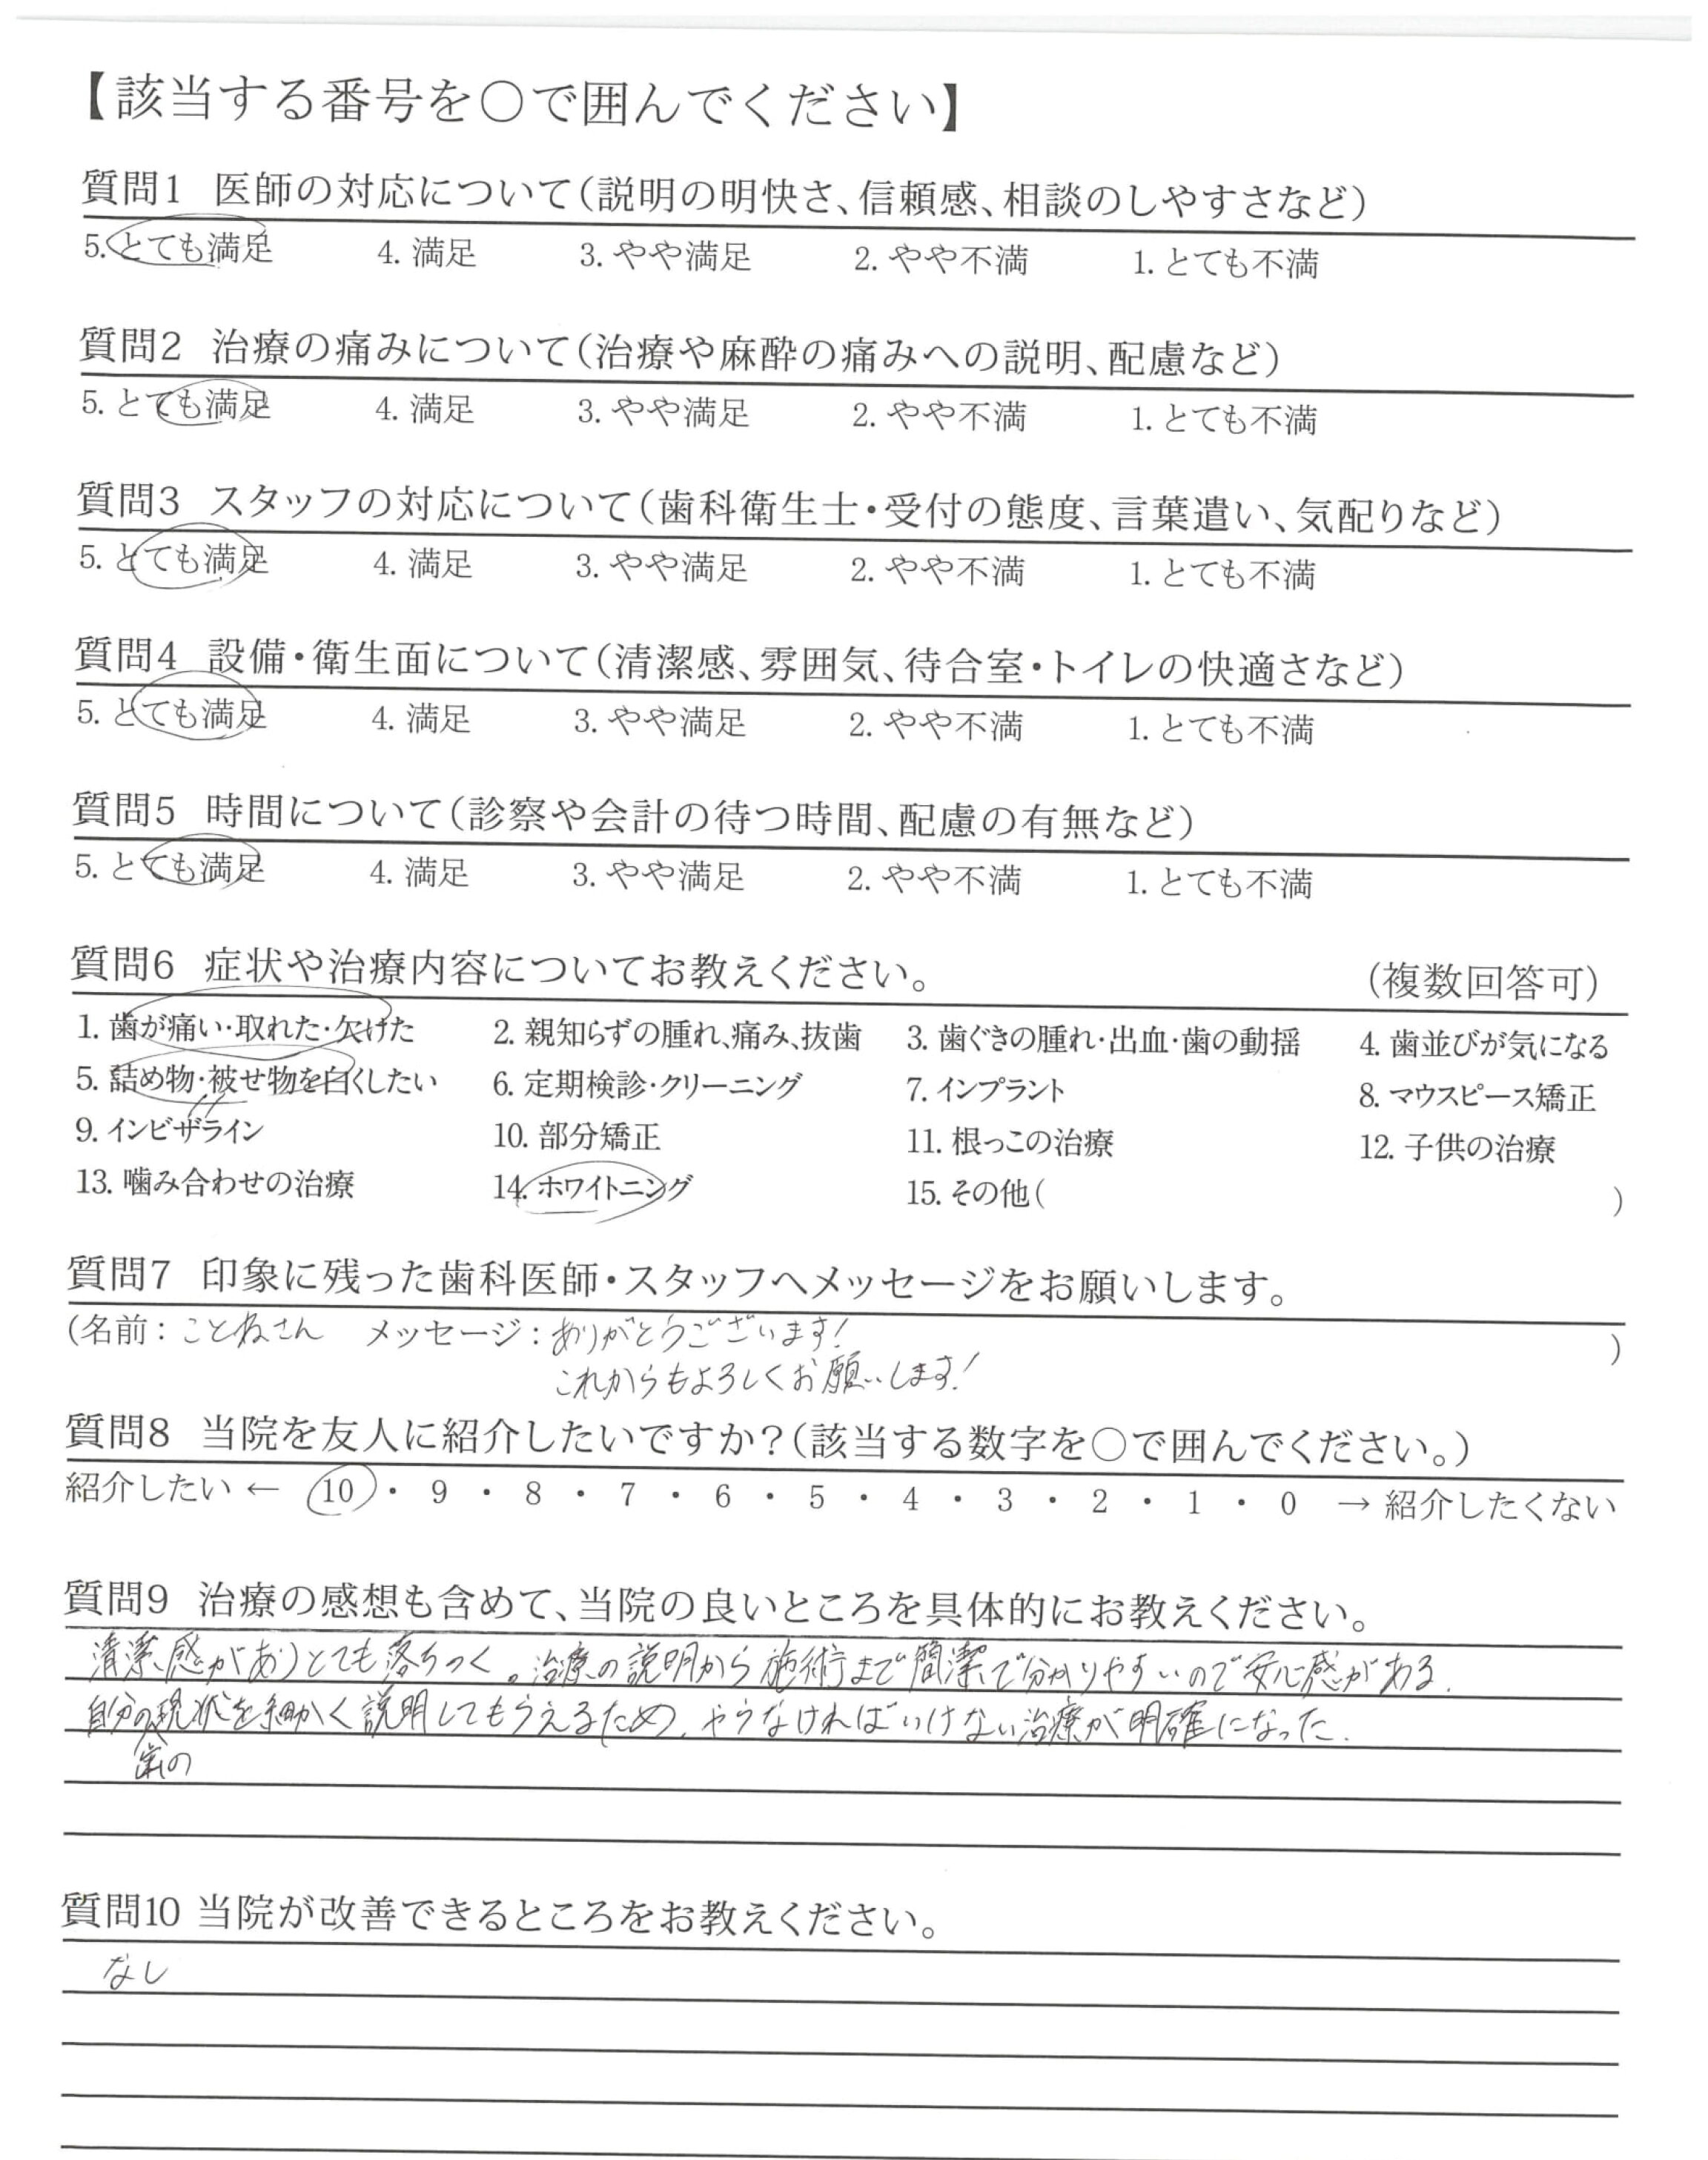 【該当する番号を○で囲んでください】
質問1 医師の対応について(説明の明快さ、信頼感、相談のしやすさなど)
5. とても満足 4. 満足 3. やや満足 2. やや不満 1. とても不満
質問2 治療の痛みについて(治療や麻酔の痛みへの説明、配慮など)
5. とても満足 4. 満足 3. やや満足 2. やや不満 1. とても不満
質問3 スタッフの対応について(歯科衛生士・受付の態度、言葉遣い、気配りなど)
5. とても満足 4. 満足 3. やや満足 2. やや不満 1. とても不満
質問4 設備・衛生面について(清潔感、雰囲気、待合室・トイレの快適さなど)
5. とても満足 4. 満足 3. やや満足 2. やや不満 1. とても不満
質問5 時間について(診察や会計の待つ時間、配慮の有無など)
5. とても満足 4. 満足 3. やや満足 2. やや不満 1. とても不満
質問6 症状や治療内容についてお教えください。 (複数回答可)
1. 歯が痛い・取れた・欠けた 2. 親知らずの腫れ、痛み、抜歯 3. 歯ぐきの腫れ・出血・歯の動揺 4. 歯並びが気になる
5. 詰め物・被せ物を白くしたい 6. 定期検診・クリーニング 7. インプラント 8. マウスピース矯正
9. インビザライン 10. 部分矯正 11. 根っこの治療 12. 子供の治療
13. 噛み合わせの治療 14. ホワイトニング 15. その他( )
質問7 印象に残った歯科医師・スタッフへメッセージをお願いします。
(名前：ことねさん メッセージ：ありがとうございます! )
これからもよろしくお願いします!
質問8 当院を友人に紹介したいですか?(該当する数字を○で囲んでください。)
紹介したい ← 10 ・ 9 ・ 8 ・ 7 ・ 6 ・ 5 ・ 4 ・ 3 ・ 2 ・ 1 ・ 0 → 紹介したくない
質問9 治療の感想も含めて、当院の良いところを具体的にお教えください。
清潔感がありとても落ちつく。治療の説明から施術まで簡潔で分かりやすいので安心感がある.
自分の現状を細かく説明してもらえるため、やらなければいけない治療が明確になった.
歯の
質問10 当院が改善できるところをお教えください。
なし